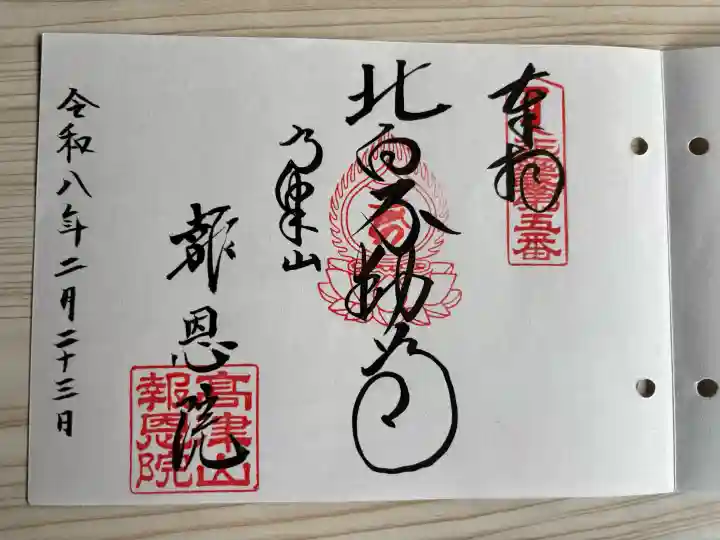 奉拝
第五番
北向不動尊
高津山
報恩院
高津山
報恩院
令和八年二月二十三日